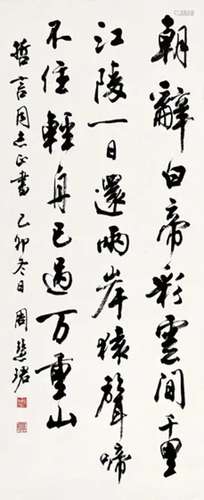 朝辞白帝彩云间千里
江陵一日還兩岸猿聲啼
不住輕舟已過万重山
哲言同志正書 乙卯冬日 周慧珺